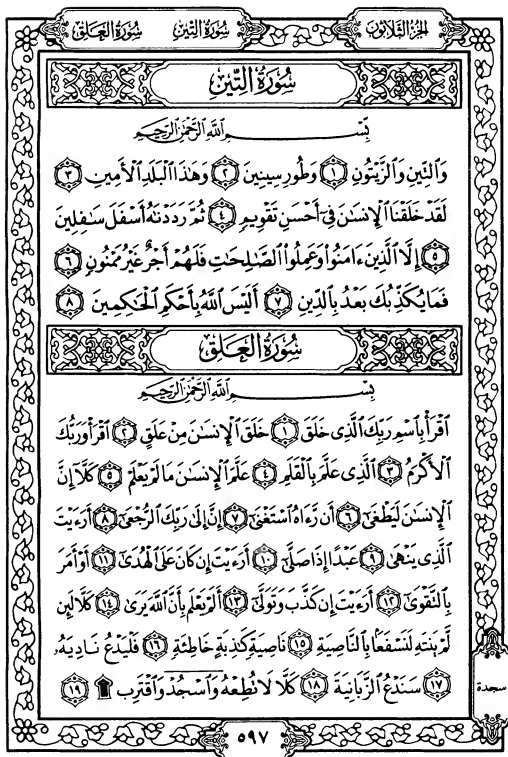 الجزء الثلاثون
سورة التين
سورة العلق
سُورَةُ التِّينِ
بِسْمِ اللَّهِ الرَّحْمَٰنِ الرَّحِيمِ
وَٱلتِّينِ وَٱلزَّيْتُونِ ١ وَطُورِ سِينِينَ ٢ وَهَٰذَا ٱلْبَلَدِ ٱلْأَمِينِ ٣
لَقَدْ خَلَقْنَا ٱلْإِنسَٰنَ فِىٓ أَحْسَنِ تَقْوِيمٍ ٤ ثُمَّ رَدَدْنَٰهُ أَسْفَلَ سَٰفِلِينَ
٥ إِلَّا ٱلَّذِينَ ءَامَنُوا۟ وَعَمِلُوا۟ ٱلصَّٰلِحَٰتِ فَلَهُمْ أَجْرٌ غَيْرُ مَمْنُونٍ ٦
فَمَا يُكَذِّبُكَ بَعْدُ بِٱلدِّينِ ٧ أَلَيْسَ ٱللَّهُ بِأَحْكَمِ ٱلْحَٰكِمِينَ ٨
سُورَةُ العَلَقِ
بِسْمِ اللَّهِ الرَّحْمَٰنِ الرَّحِيمِ
ٱقْرَأْ بِٱسْمِ رَبِّكَ ٱلَّذِى خَلَقَ ١ خَلَقَ ٱلْإِنسَٰنَ مِنْ عَلَقٍ ٢ ٱقْرَأْ وَرَبُّكَ
ٱلْأَكْرَمُ ٣ ٱلَّذِى عَلَّمَ بِٱلْقَلَمِ ٤ عَلَّمَ ٱلْإِنسَٰنَ مَا لَمْ يَعْلَمْ ٥ كَلَّآ إِنَّ
ٱلْإِنسَٰنَ لَيَطْغَىٰٓ ٦ أَن رَّءَاهُ ٱسْتَغْنَىٰٓ ٧ إِنَّ إِلَىٰ رَبِّكَ ٱلرُّجْعَىٰٓ ٨ أَرَءَيْتَ
ٱلَّذِى يَنْهَىٰ ٩ عَبْدًا إِذَا صَلَّىٰٓ ١٠ أَرَءَيْتَ إِن كَانَ عَلَى ٱلْهُدَىٰٓ ١١ أَوْ أَمَرَ
بِٱلتَّقْوَىٰٓ ١٢ أَرَءَيْتَ إِن كَذَّبَ وَتَوَلَّىٰٓ ١٣ أَلَمْ يَعْلَم بِأَنَّ ٱللَّهَ يَرَىٰ ١٤ كَلَّا لَئِن
لَّمْ يَنتَهِ لَنَسْفَعًۢا بِٱلنَّاصِيَةِ ١٥ نَاصِيَةٍ كَٰذِبَةٍ خَاطِئَةٍ ١٦ فَلْيَدْعُ نَادِيَهُۥ
١٧ سَنَدْعُ ٱلزَّبَانِيَةَ ١٨ كَلَّا لَا تُطِعْهُ وَٱسْجُدْ وَٱقْتَرِب ۩ ١٩
سجدة
٥٩٧